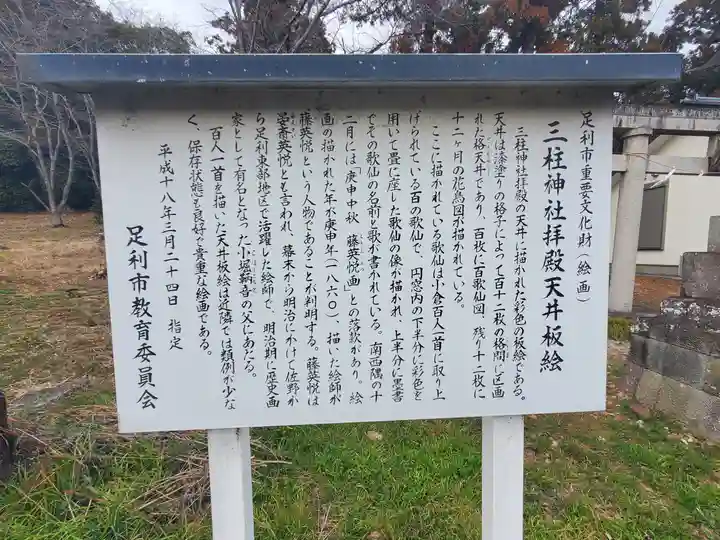 足利市重要文化財(絵画)
三柱神社拝殿天井板絵
三柱神社拝殿の天井に描かれた彩色の板絵である。
天井は漆塗りの格子によって百十二枚の格間に区画
された格天井であり、百枚に百歌仙図、残り十二枚に
十二ヶ月の花鳥図が描かれている。
ここに描かれている歌仙は小倉百人一首に取り上
げられている百の歌仙で、円窓内の下半分に彩色を
用いて畳に座した歌仙の像が描かれ、上半分に墨書
でその歌仙の名前と歌が書かれている。南西隅の十
二月には「庚申中秋 藤英悦画」との落款があり、絵
画の描かれた年が庚申年(一八六〇)、描いた絵師が
藤英悦という人物であることが判明する。藤英悦は
斎英悦とも言われ、幕末から明治にかけて佐野か
ら足利東部地区で活躍した絵師で、明治期に歴史画
家として有名となった小堀鞆音の父にあたる。
百人一首を描いた天井板絵は近隣では類例が少な
く、保存状態も良好で貴重な絵画である。
平成十八年三月二十四日 指定
足利市教育委員会